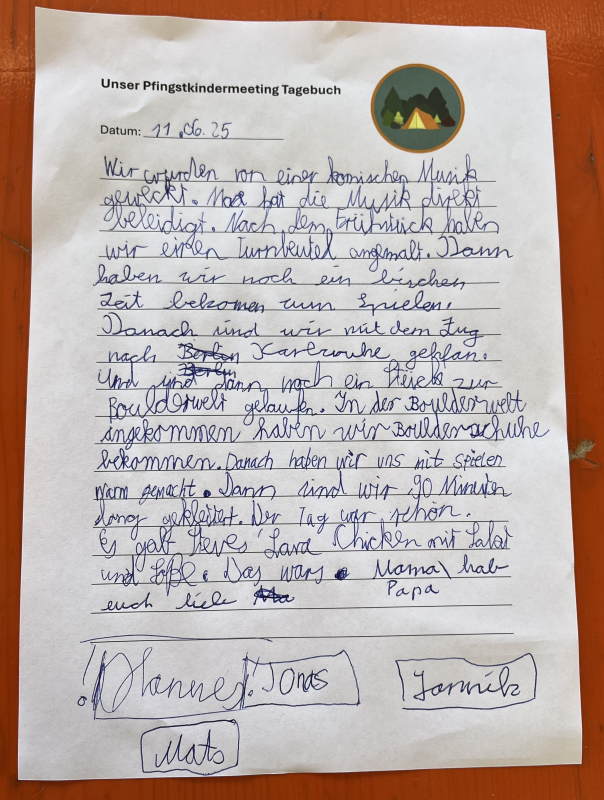 Unser Pfingstkindermeeting Tagebuch
Datum: 11.06.25
Wir wurden von einer komischen Musik
geweckt. hat die Musik direkt
beleidigt. Nach dem Frühstück haben
wir einen Turnbeutel angemalt. Dann
haben wir noch ein bischen
Zeit bekomen zum Spielen.
Danach sind wir mit dem Zug
nach Berlin Karlsruhe gefahn.
Berlin
Und sind dann noch ein Stück zur
Boulderwelt gelaufen. In der Boulderwelt
angekommen haben wir Boulderschuhe
bekommen. Danach haben wir uns mit spielen
warm gemacht. Dann sind wir 90 Minuten
lang geklettert. Der Tag war schön.
Es gab Steves Lava Chicken mit Salat
und Soße. Das wars. Mama\ hab
euch lieb Ma Papa
!Hannes! Jonas Jannik
Mats